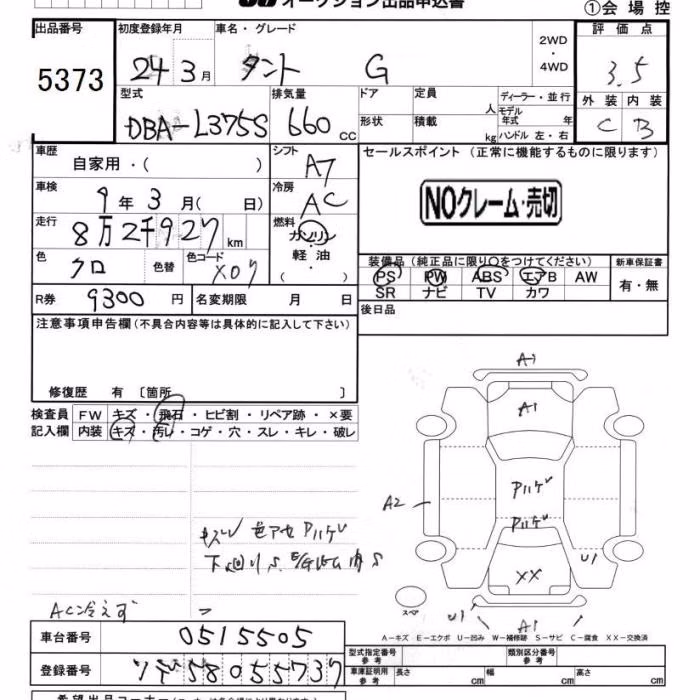 オークション出品申込書
①会場控
出品番号
5373
初度登録年月
24 3月
車名・グレード
タント G
2WD
・
4WD
評価点
3.5
外装 内装
C B
型式
DBA-L375S
排気量
660 CC
ドア
形状
定員
人
積載
kg
ディーラー・並行
モデル
年式 年
ハンドル 左・右
車歴
自家用・( )
シフト
AT
セールスポイント (正常に機能するものに限ります)
NOクレーム・売切
車検
9年 3月( 日)
冷房
AC
走行
8万2千927km
燃料
ガソリン
軽油
( )
色
クロ
色替
色コード
X07
装備品(純正品に限り○をつけてください)
PS PW ABS エアB AW
SR ナビ TV カワ
新車保証書
有・無
R券
9300 円
名変期限 月 日
後日品
注意事項申告欄(不具合内容等は具体的に記入して下さい)
修復歴 有 〔箇所 〕
検査員
記入欄
FW キズ・飛石・ヒビ割・リペア跡・×要
内装 キズ・汚レ・コゲ・穴・スレ・キレ・破レ
A1
A1
Pハゲ
Pハゲ
A2
XX
U1
U1
A1
スペ
色アセ Pハゲ
AC冷えず
A-キズ E-エクボ U-凹み W-補修跡 S-サビ C-腐食 XX-交換済
車台番号
0515505
登録番号
580 5573
型式指定番号
参考
類別区分番号
参考
車庫証明用
参考
長さ cm
幅 cm
高さ cm